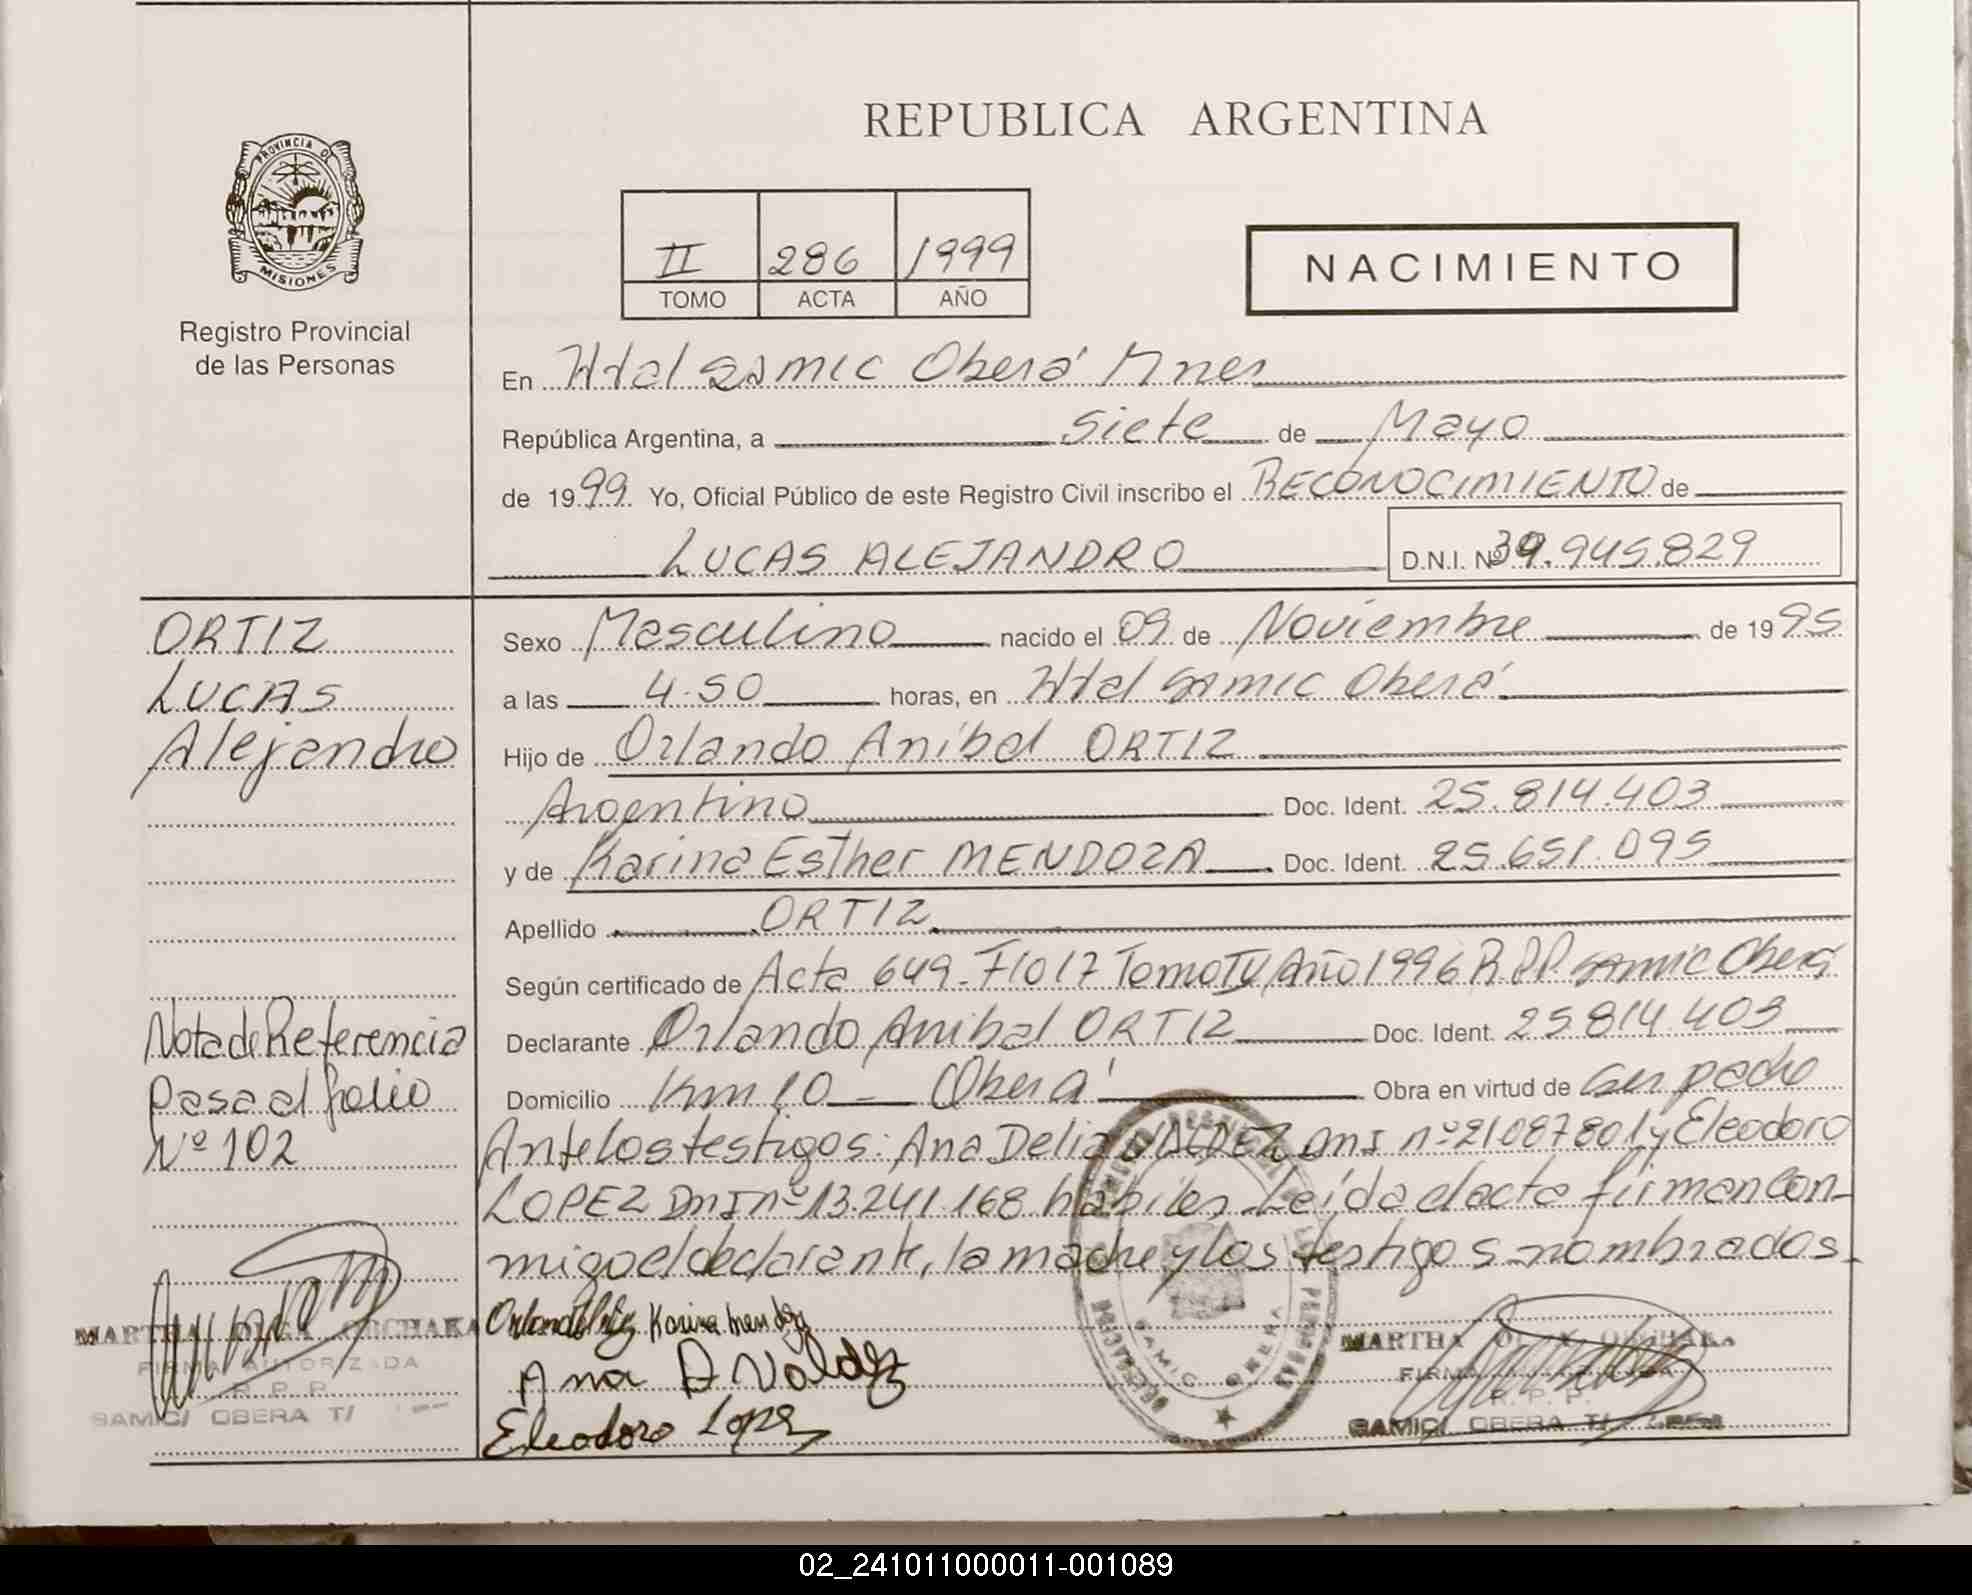 REPUBLICA ARGENTINA
PROVINCIA DE
MISIONES
Registro Provincial
de las Personas
II 286 1999
TOMO ACTA AÑO
NACIMIENTO
En Htal SAMIC Oberá Mnes
República Argentina, a siete de Mayo
de 1999. Yo, Oficial Público de este Registro Civil inscribo el RECONOCIMIENTO de
LUCAS ALEJANDRO D.N.I. Nº 39.945.829
ORTIZ
LUCAS
Alejandro
Sexo Masculino nacido el 09 de Noviembre de 1995
a las 4.50 horas, en Htal SAMIC Oberá
Hijo de Orlando Aníbal ORTIZ
Argentino Doc. Ident. 25.814.403
y de Karina Esther MENDOZA Doc. Ident. 25.651.095
Apellido ORTIZ
Según certificado de Acta 649-Fº 017 Tomo IV Año 1996 R.P.P. SAMIC Oberá
Declarante Orlando Anibal ORTIZ Doc. Ident. 25.814.403
Domicilio Km 10 - Oberá Obra en virtud de ser padre
Nota de Referencia
Pasa al folio
Nº 102
Ante los testigos: Ana Delia VALDEZ DNI nº 21087801 y Eleodoro
LOPEZ DNI nº 13.241.168 hábiles. Leída el acta firman con-
migo el declarante, la madre y los testigos nombrados.
Karina Mendoza
Ana D Valdez
Eleodoro Lopez
MARTHA OLGA
FIRMA AUTORIZADA
R. P. P.
SAMIC/ OBERA T/
MARTHA
FIRMA
R. P. P.
SAMIC/ OBERA T/
SAMIC OBERA
02_241011000011-001089